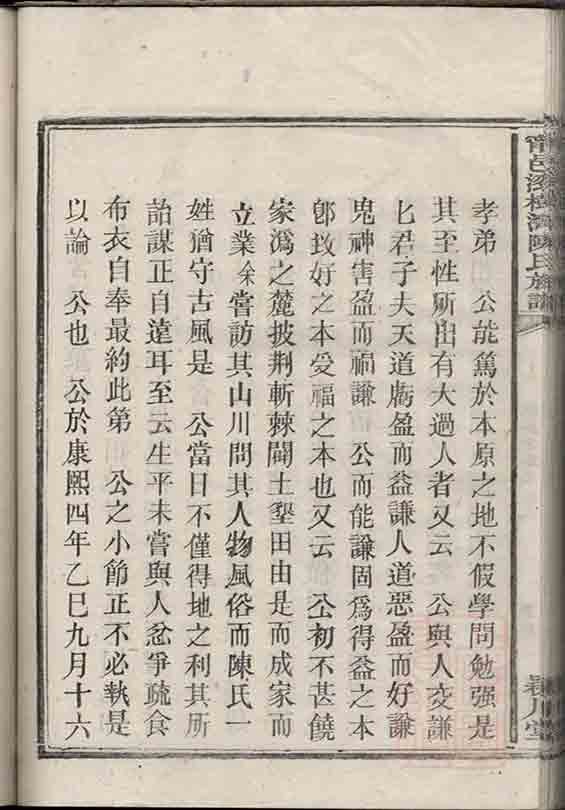 孝弟　公能篤於本原之地不假學問勉强是
其至性所出有大過人者又云　公與人交謙
匕君子夫天道虧盈而益謙人道惡盈而好謙
鬼神害盈而福謙　公而能謙固爲得益之本
卽致好之本受福之本也又云　公初不甚饒
家溈之麓披荆斬棘闢土墾田由是而成家而
立業余嘗訪其山川問其人物風俗而陳氏一
姓猶守古風是　公當日不僅得地之利其所
詒謀正自遠耳至云生平未嘗與人忿爭疏食
布衣自奉最約此第　公之小節正不必執是
以論　公也　公於康熙四年乙巳九月十六
甯邑　陳氏族譜
潁川堂